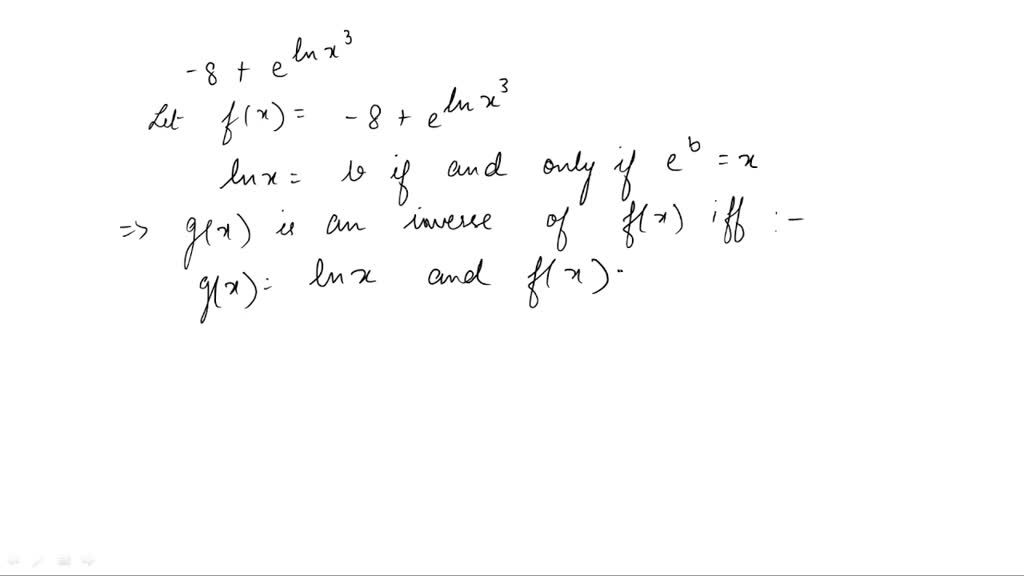 -8 + e^{ln x^3}
Let f(x) = -8 + e^{ln x^3}
ln x = b if and only if e^b = x
=> g(x) is an inverse of f(x) iff :-
g(x) = ln x and f(x) -